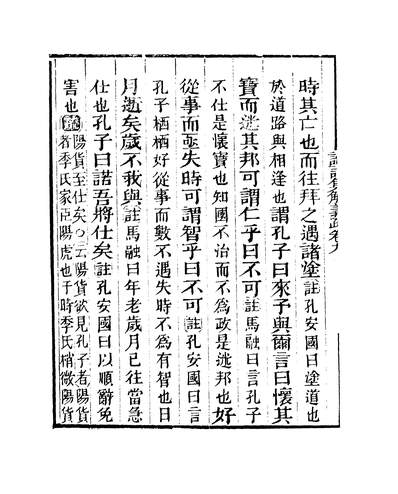 時其亡也而往拜之遇諸塗註孔安國曰塗道也
於道路與相逢也謂孔子曰來予與爾言曰懷其
寶而迷其邦可謂仁乎曰不可註馬融曰言孔子
不仕是懷寶也知國不治而不為政是迷邦也好
從事而亟失時可謂智乎曰不可註孔安國曰言
孔子栖栖好從事而數不遇失時不為有智也日
月逝矣歲不我與註馬融曰年老歲月已往當急
仕也孔子曰諾吾將仕矣註孔安國曰以順辭免
害也疏陽貨至仕矣○云陽貨欲見孔子者陽貨
者季氏家臣陽虎也于時季氏稍微陽貨